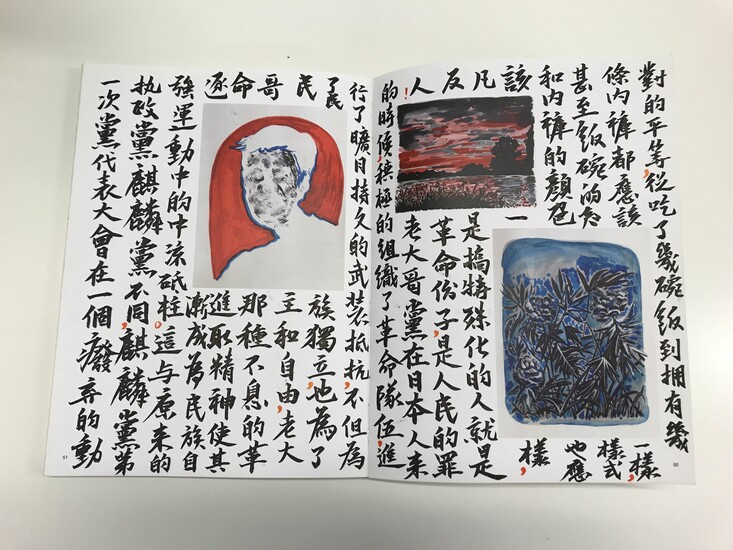 對的平等,從吃了幾碗飯到擁有幾
條內褲都應該一樣,
甚至飯碗的樣式
和內褲的顏色也應
該一樣,
凡是搞特殊化的人就是
反革命份子,是人民的罪
人!老大哥黨在日本人來
的時候,積極的組織了革命隊伍,進
50
行了曠日持久的武裝抵抗,不但為
了民族獨立,也為了
民主和自由,老大
哥那種不息的革
命進取精神使其
逐漸成為民族自
強運動中的中流砥柱。這與原來的
執政黨麒麟黨不同,麒麟黨第
一次黨代表大會在一個廢弃的動
51